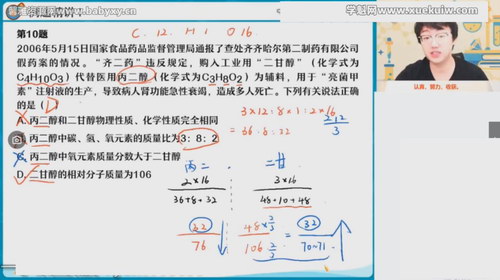 www.babyxy.cn
学魁网www.xuekuiw.com
C.12. H 1 O16
第10题
2006年5月15日国家食品药品监督管理局通报了查处齐齐哈尔第二制药有限公司
假药案的情况。“齐二药”违反规定,购入工业用“二甘醇”(化学式为
C4H10O3)代替医用丙二醇(化学式为C3H8O2)为辅料,用于“亮菌甲
素”注射液的生产,导致病人肾功能急性衰竭,造成多人死亡。下列有关说法正
确的是(D)
3×12:8×1:2×16
A.丙二醇和二甘醇物理性质、化学性质完全相同
=36:8:32
B.丙二醇中碳、氢、氧元素的质量比为3:8:2
C.丙二醇中氧元素质量分数大于二甘醇
D.二甘醇的相对分子质量为106
丙二 二甘
2×16
36+8+32
3×16
48+10+48
32
76
48×2/3
106 2/3
=
32
70~71
认真、努力、收获。
学魁网www.xuekuiw.com